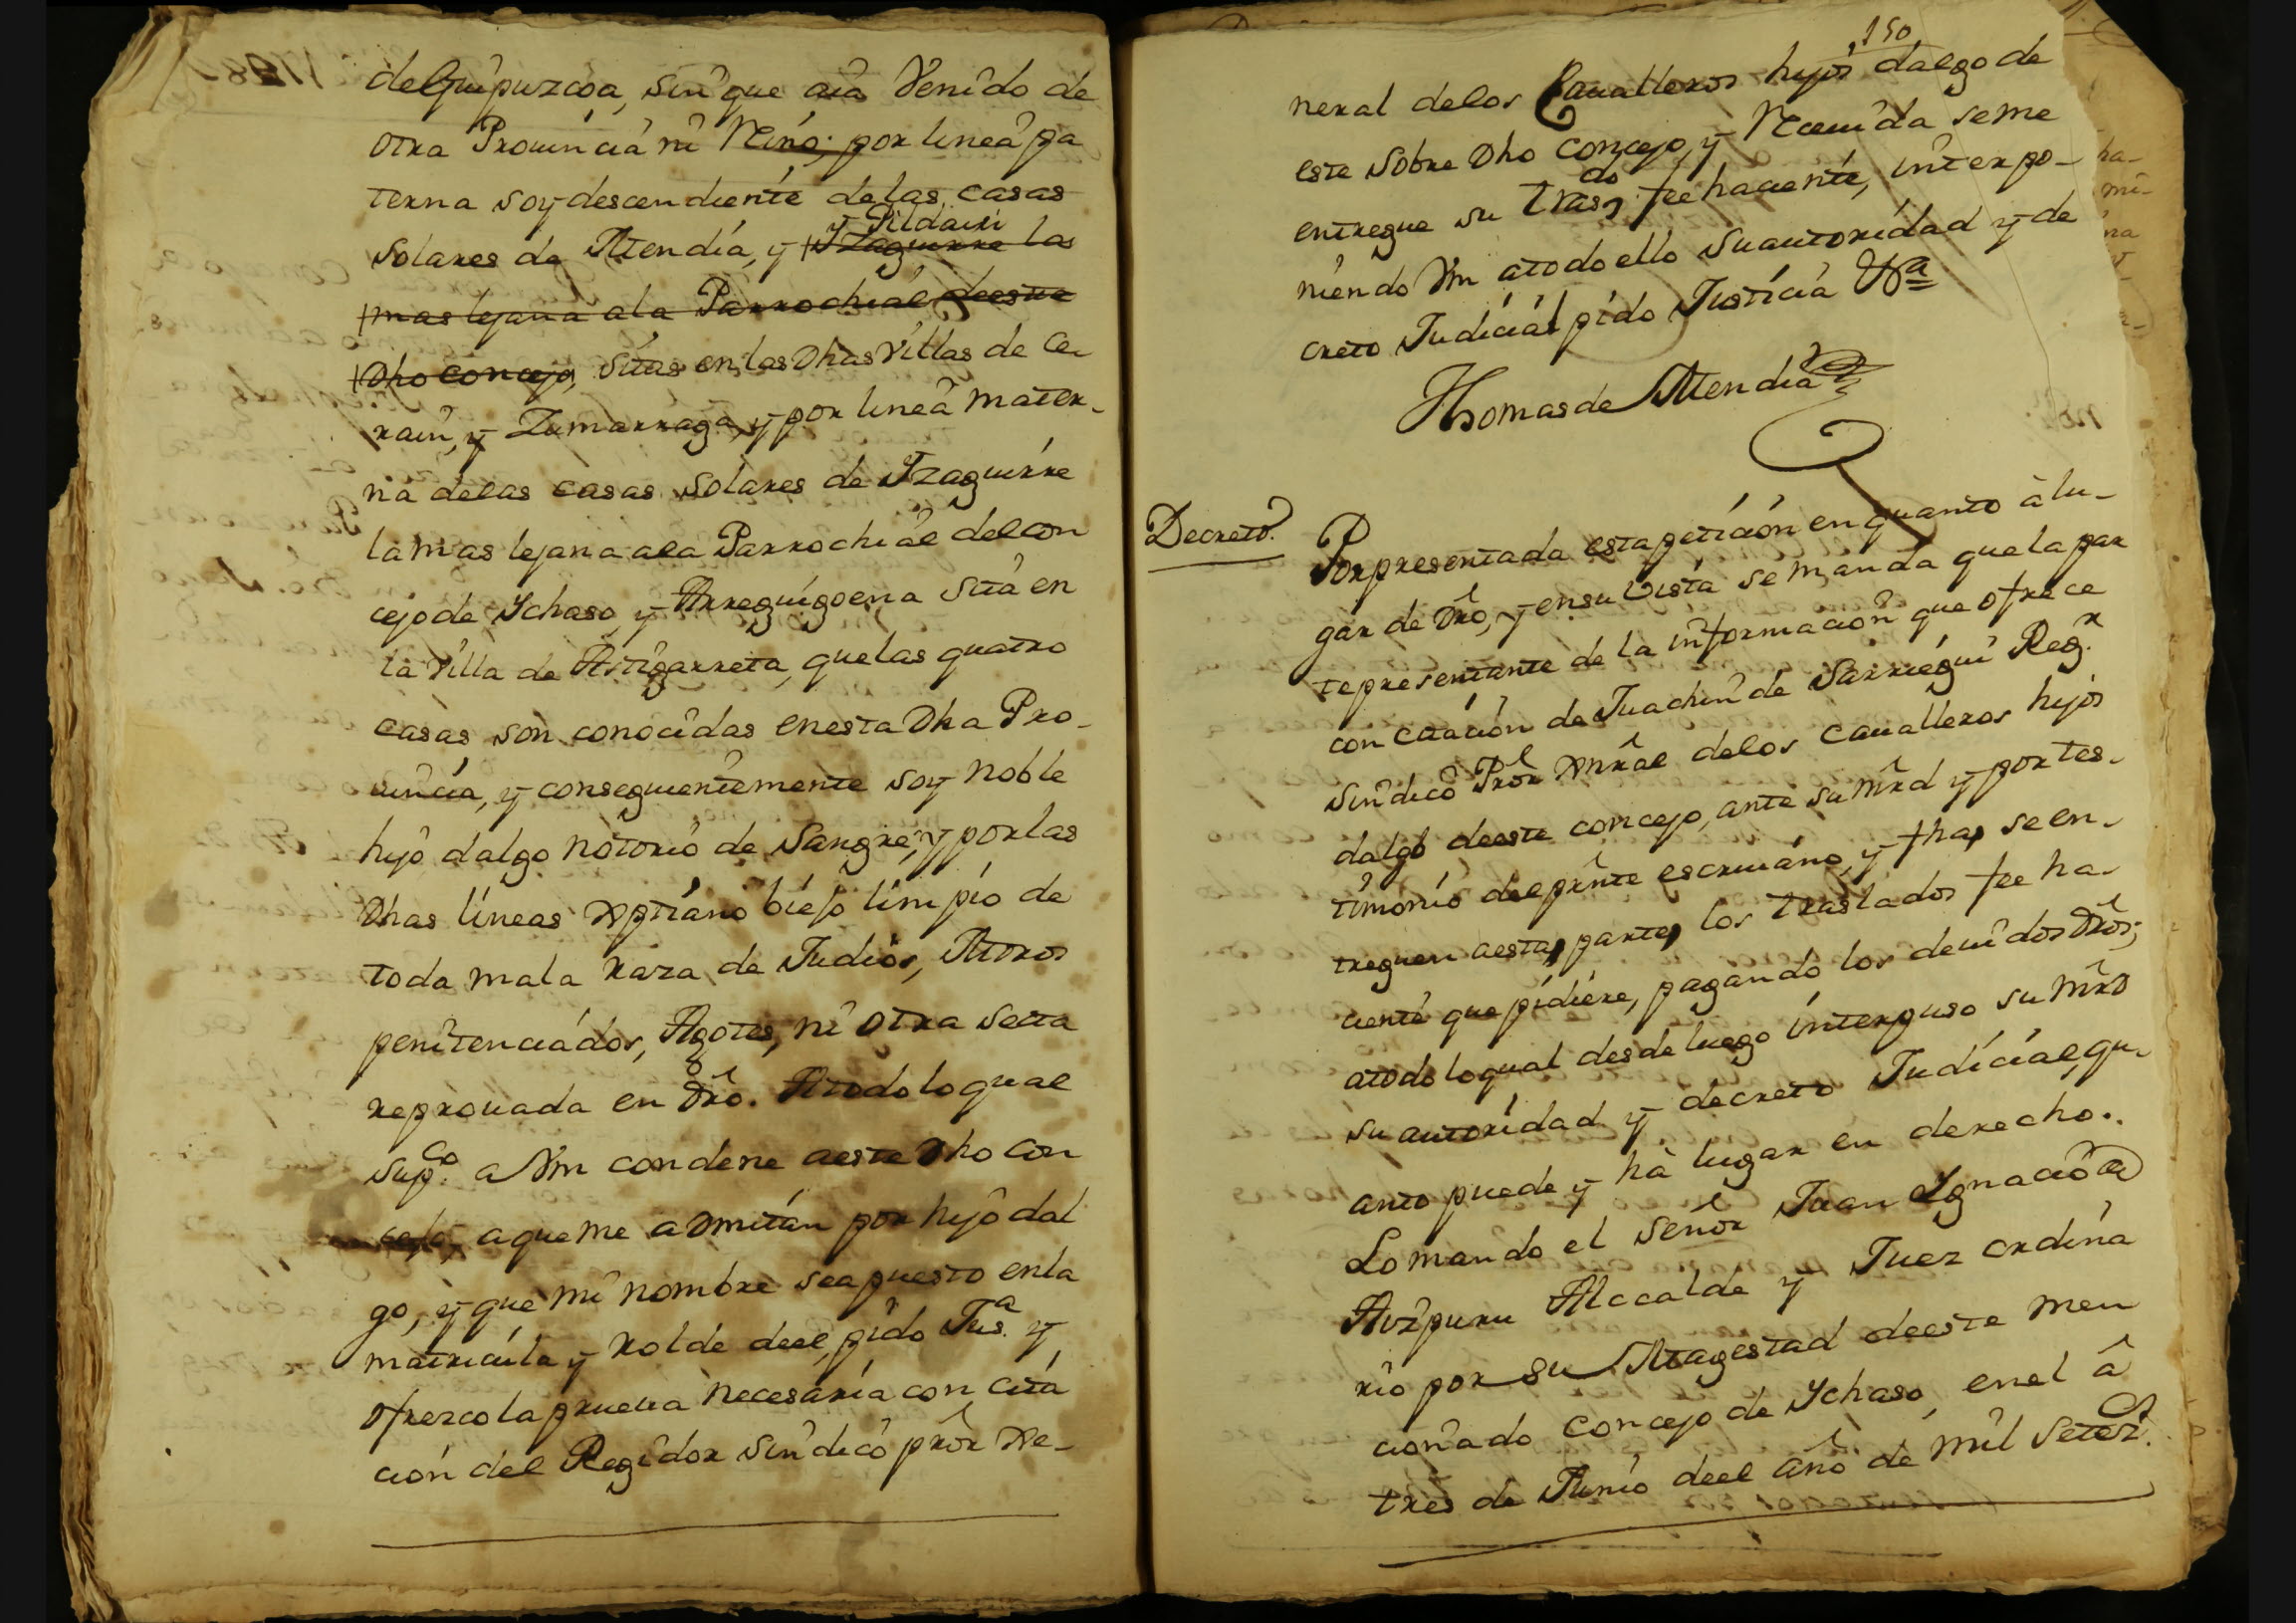 de Guipuzcoa, sin que aia Venido de
otra Prouincia ni Reino; por linea pa
terna soy descendiente de las casas
y Pildairi
solares de Mendia, y Yzaguirre las
mas lejana ala Parrochial deeste
Dho concejo, sitas en las Dhas Villas de Ce-
rain, y Zumarraga, y por linea mater-
na de las casas solares de Yzaguirre
la mas lejana ala Parrochial del con
cejo de Ychaso, y Arreguigoena sita en
la Villa de Astigarreta, que las quatro
casas son conocidas en esta Dha Pro-
uincia, y conseguientemente soy noble
hijo dalgo notorio de Sangre, y por las
Dhas lineas Xptiano biejo limpio de
toda mala raza de Judios, Moros
penitenciados, Agotes, ni otra secta
reprouada en Dro. Atodo lo qual
supco. a Vm condene aeste Dho con
cejo, a que me admitan por hijo dal
go, y que mi nombre sea puesto en la
matricula y rolde deel, pido Jusa. y
ofrezco la prueua necesaria con cita
cion del Regidor sindico pror Xe-
150
neral delos Caualleros hijos dalgo de
este sobre Dho concejo, y Receuida se me
entregue su trasdo fee haciente, interpo-
niendo Vm atodo ello su autoridad y de
creto Judicial pido Justicia Va
Thomas de Mendia
Decreto.
Por presentada esta peticion en quanto à lu-
gar de Dro, y en su vista se manda que la par
te presentante de la informacion que ofrece
con citacion de Juachin de Sarriegui Regr.
sindico Pror Xnral delos caualleros hijos
dalgo deeste concejo, ante su mrd y por tes-
timonio del prnte escriuano, y fhas se en-
treguen aesta parte, los traslados fee ha-
ciente que pidiere, pagando los deuidos Dros;
atodo lo qual desde luego interpuso su mrd
su autoridad y decreto Judicial, qu-
anto puede y hà lugar en derecho..
Lo mando el señor Juan Ygnacio de
Aizpuru Alccalde y Juez ordina
rio por su Magestad deeste men
cionado concejo de Ychaso, en el â
tres de Junio deel año de mil setezs.